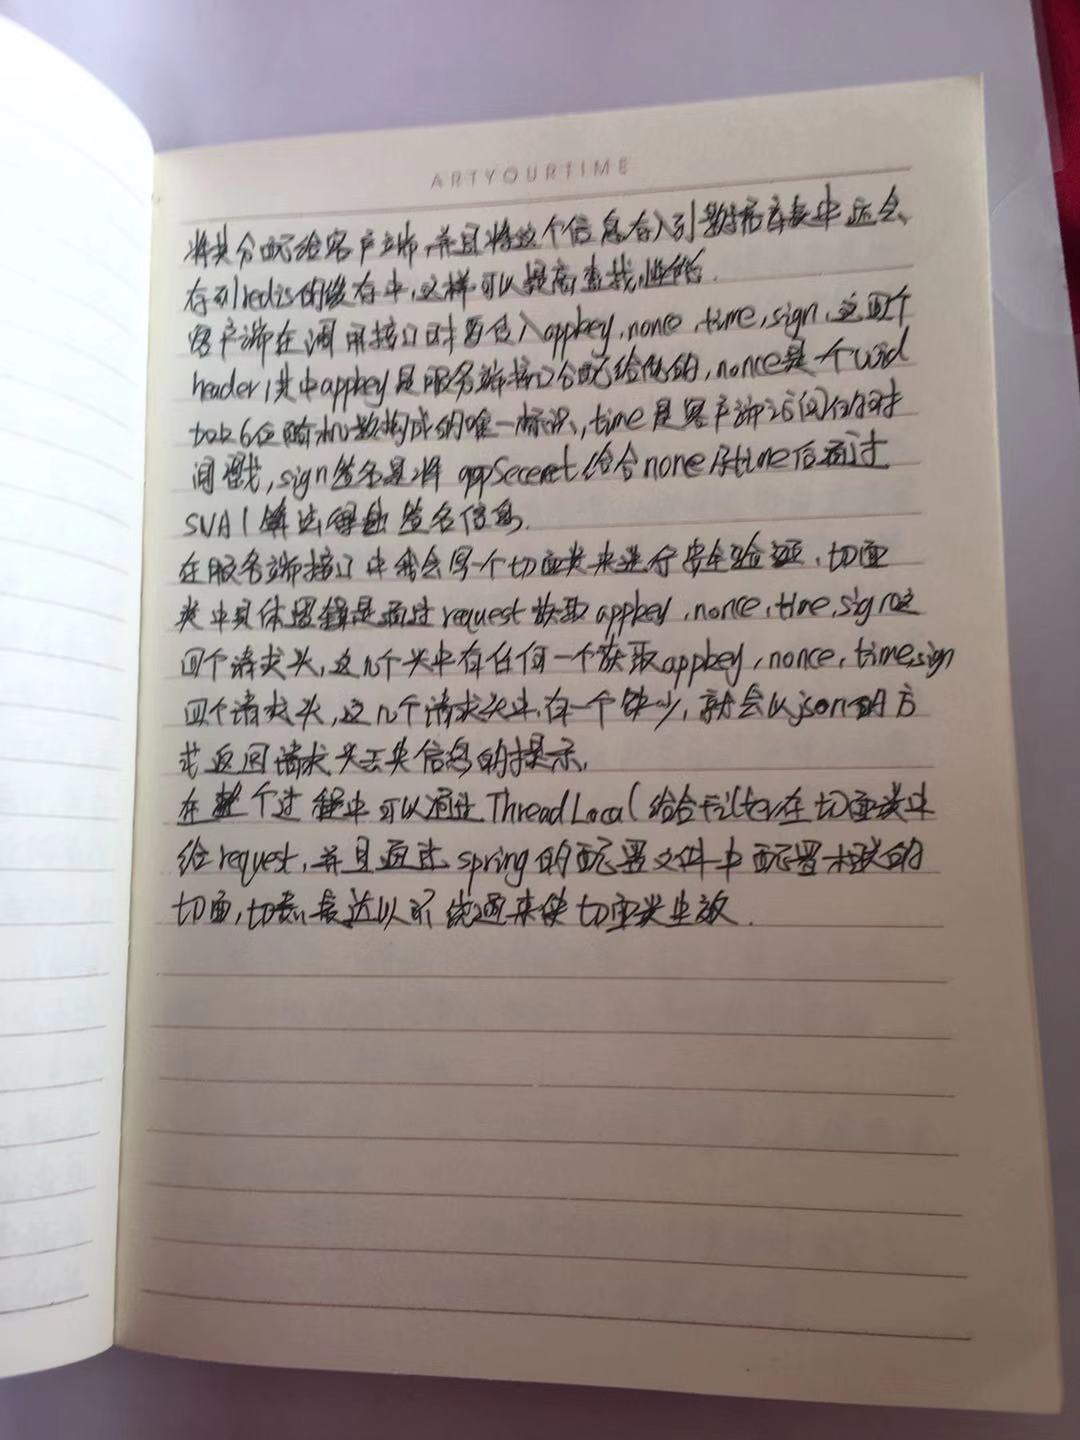 ARTYOURTIME
将其分配给客户端,并且将这个信息存入到数据库表中还会
存到redis的缓存中,这样可以提高查找性能.
客户端在调用接口时要传入appkey,nonce,time,sign,这四个
header,其中appkey是服务端接口分配给他的,nonce是一个uuid
6位随机数构成的唯一标识,time是客户端访问的时
间戳,sign签名是将appSeceret结合none及time后通过
SVA1算法得出签名信息.
在服务端接口中我会写一个切面类来进行安全验证,切面
类中具体逻辑是通过request获取appkey,nonce,time,sign这
四个请求头,这几个头中有任何一个获取appkey,nonce,time,sign
四个请求头,这几个请求头中,有一个缺少,就会以json的方
式返回请求头丢失信息的提示,
在整个过程中可以通过ThreadLocal结合Filter在切面类中
给request,并且通过spring的配置文件中配置相关的
切面,切点表达以来使切面类生效.